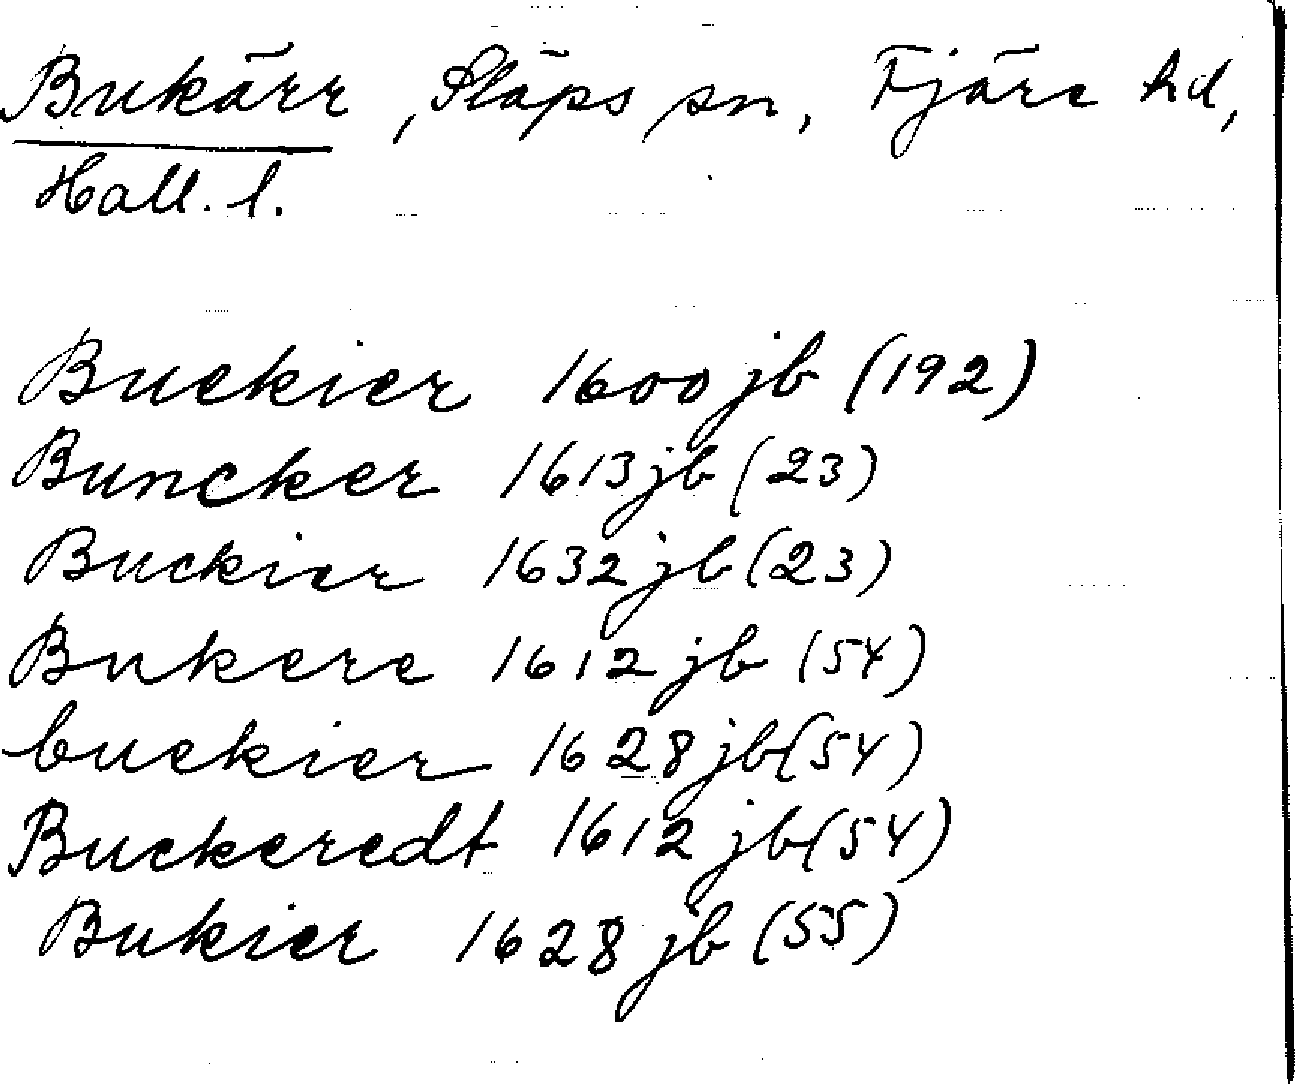 Bukärr, Släps sn, Fjäre hd,
Hall. l.
Buckier 1600 jb (192)
Buncker 1613 jb (23)
Buckier 1632 jb (23)
Bukere 1612 jb (54)
buckier 1628 jb (54)
Buckeredt 1612 jb (54)
Bukier 1628 jb (55)